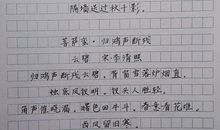 隔墙送过秋千影。
菩萨蛮·归鸿声断残
云碧 宋李清照
归鸿声断残云碧,背窗雪落炉烟直。
烛底凤钗明,钗头人胜轻。
角声催晓漏,曙色回牛斗。春意看花难,
西风留旧寒。